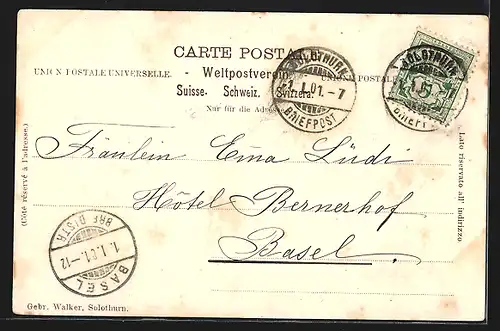 CARTE POSTALE
UNION POSTALE UNIVERSELLE. - Weltpostverein. UNIONE POSTALE
Suisse. Schweiz. Svizzera.
Nur für die Adresse
SOLOTHURN
1.I.01.-7
BRIEFPOST
SOLOTHURN
BRIEFP
(Côté réservé à l'adresse.)
Lato riservato all' indirizzo
Fräulein Ema Lüdi
Hôtel Bernerhof
Basel
BRF. DISTR.
1.I.01.-12
BASEL
Gebr. Walker, Solothurn.